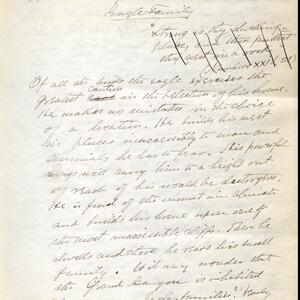 Eagle Family
"Strong is thy dwelling-
place, and thou puttest
thy nest in a rock
Numbers XXIV 21
Of all the birds the eagle exercises the
greatest caution in the selection of his home.
He makes no mistakes in the choice
of a location. He builds his nest
in places inaccessible to man and
animals he has to fear. His powerful
wings will carry him to a height out
of reach of his would be destroyers.
He is fond of the mount ain climate
and builds his home upon one of
the most inaccessible cliffs. There he
dwells and there he rears his small
family. Is it any wonder that
the Grand Canyon is inhabited
families?